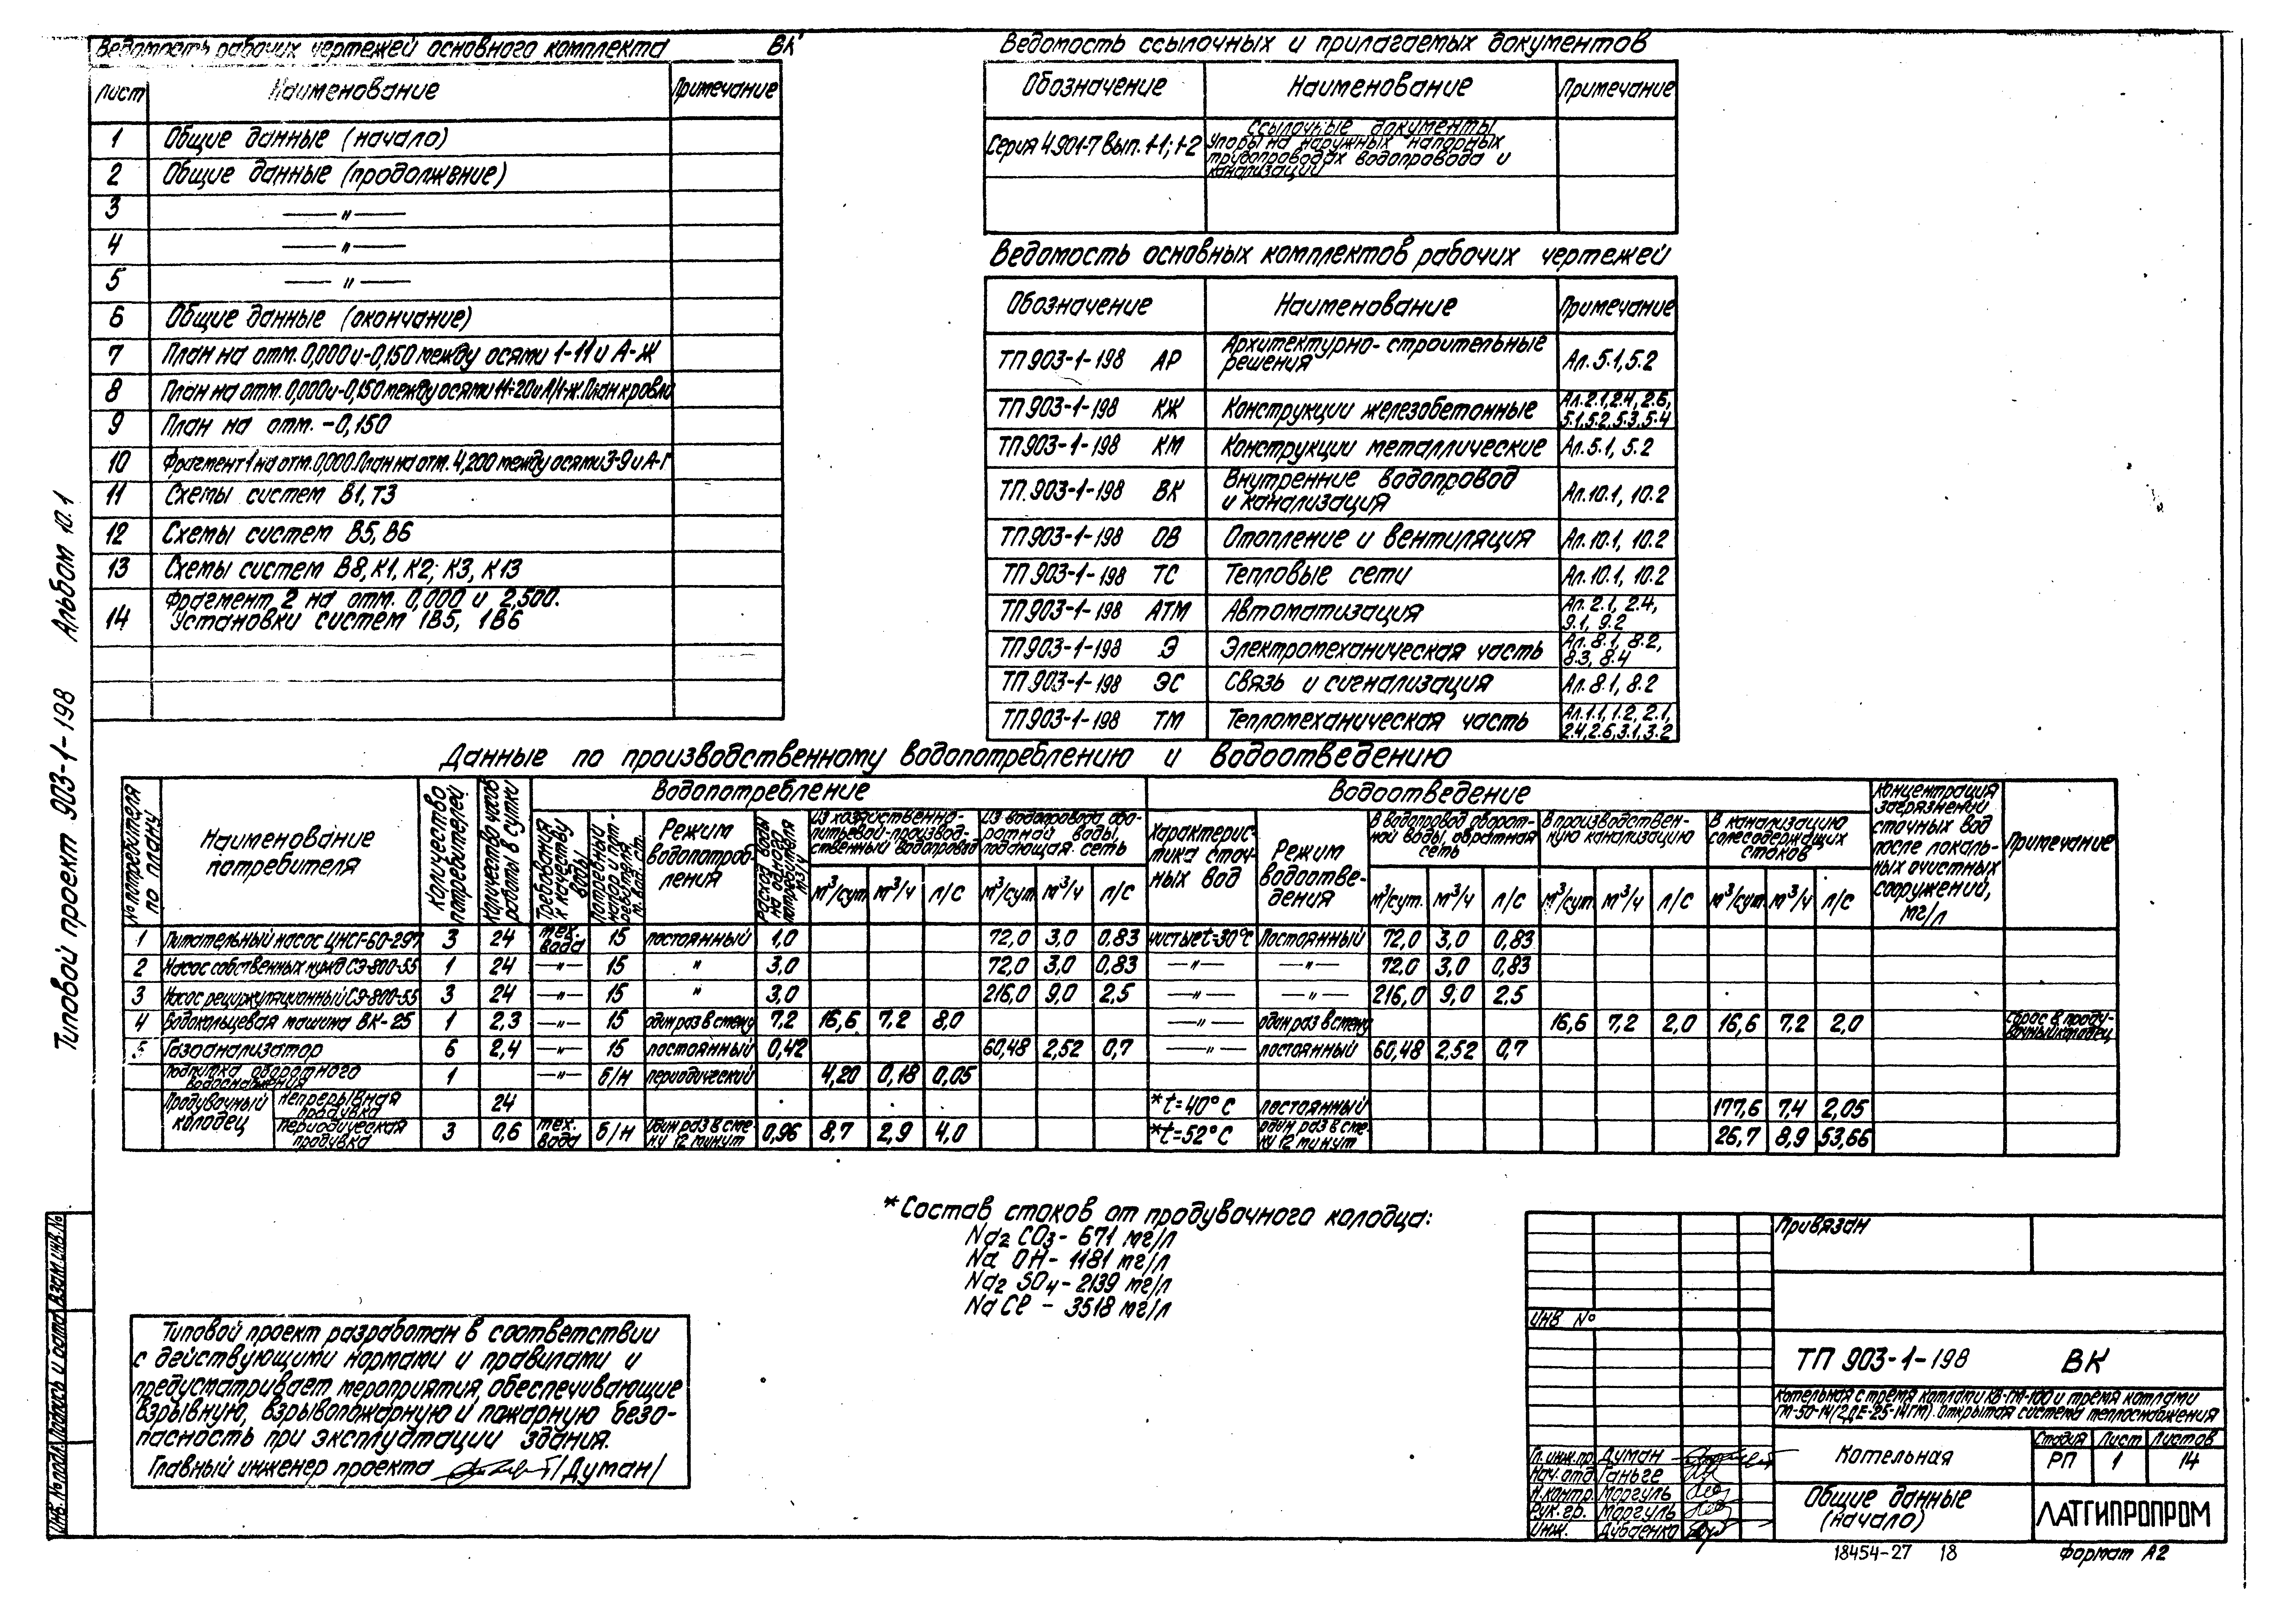 Ведомость рабочих чертежей основного комплекта ВК
Лист Наименование Примечание
1 Общие данные (начало)
2 Общие данные (продолжение)
3 —〃—
4 —〃—
5 —〃—
6 Общие данные (окончание)
7 План на отм. 0,000 и -0,150 между осями 1-11 и А-Ж
8 План на отм. 0,000 и -0,150 между осями План кровли
9 План на отм. -0,150
10 Фрагмент 1 на отм. 0,000. План на отм. 4,200 между осями 3-9 и А-Г
11 Схемы систем В1, Т3
12 Схемы систем В5, В6
13 Схемы систем В8, К1, К2; К3, К13
14 Фрагмент 2 на отм. 0,000 и 2,500.
Установки систем 1В5, 1В6
Ведомость ссылочных и прилагаемых документов
Обозначение Наименование Примечание
Ссылочные документы
Серия 4.901-7 Вып. 1-1; 1-2 Упоры на наружных напорных
трубопроводах водопровода и
канализации
Ведомость основных комплектов рабочих чертежей
Обозначение Наименование Примечание
ТП 903-1-198 АР Архитектурно-строительные
решения Ал. 5.1, 5.2
ТП 903-1-198 КЖ Конструкции железобетонные Ал. 2.1, 2.4, 2.6,
5.1, 5.2, 5.3, 5.4
ТП 903-1-198 КМ Конструкции металлические Ал. 5.1, 5.2
ТП. 903-1-198 ВК Внутренние водопровод
и канализация Ал. 10.1, 10.2
ТП 903-1-198 ОВ Отопление и вентиляция Ал. 10.1, 10.2
ТП 903-1-198 ТС Тепловые сети Ал. 10.1, 10.2
ТП 903-1-198 АТМ Автоматизация Ал. 2.1, 2.4,
9.1, 9.2
ТП 903-1-198 Э Электромеханическая часть Ал. 8.1, 8.2,
8.3, 8.4
ТП 903-1-198 ЭС Связь и сигнализация Ал. 8.1, 8.2
ТП 903-1-198 ТМ Тепломеханическая часть Ал. 1.1, 1.2, 2.1,
2.4, 2.6, 3.1, 3.2
Типовой проект 903-1-198 Альбом 10.1
Данные по производственному водопотреблению и водоотведению
№ потребителя по плану
Наименование потребителя
Количество потребителей
Количество часов работы в сутки
Водопотребление
Требования к качеству воды
Потребный напор у потребителя м. вод. ст.
Режим водопотребления
Расход воды на одного потребителя м3/ч
Из хозяйственно-питьевой-производственный водопровод
м³/сут м³/ч л/с
Из водопровода оборотной воды, подающая сеть
м³/сут м³/ч л/с
Водоотведение
Характеристика сточных вод
Режим водоотведения
В водопровод оборотной воды, обратная сеть
м³/сут. м³/ч л/с
В производственную канализацию
м³/сут м³/ч л/с
В канализацию солесодержащих стоков
м³/сут м³/ч л/с
Концентрация загрязнений сточных вод после локальных очистных сооружений, мг/л
Примечание
1 Питательный насос ЦНСГ-60-297 3 24 тех. вода 15 постоянный 1,0 72,0 3,0 0,83 чистые t=30°С Постоянный 72,0 3,0 0,83
2 Насос собственных нужд СЭ-800-55 1 24 —〃— 15 〃 3,0 72,0 3,0 0,83 —〃— —〃— 72,0 3,0 0,83
3 Насос рециркуляционный СЭ-800-55 3 24 —〃— 15 〃 3,0 216,0 9,0 2,5 —〃— —〃— 216,0 9,0 2,5
4 Водокольцевая машина ВК-25 1 2,3 —〃— 15 один раз в смену 7,2 16,6 7,2 8,0 —〃— один раз в смену 16,6 7,2 2,0 16,6 7,2 2,0 сброс в продувочный колодец
5 Газоанализатор 6 2,4 —〃— 15 постоянный 0,42 60,48 2,52 0,7 —〃— постоянный 60,48 2,52 0,7
Подпитка оборотного водоснабжения 1 —〃— б/н периодический 4,20 0,18 0,05
Продувочный колодец Непрерывная продувка 24 *t=40°С постоянный 177,6 7,4 2,05
Периодическая продувка 3 0,6 тех. вода б/н один раз в смену 12 минут 0,96 8,7 2,9 4,0 *t=52°С один раз в смену 12 минут 26,7 8,9 53,66
*Состав стоков от продувочного колодца:
Na2 CO3 - 671 мг/л
Na OH - 1181 мг/л
Na2 SO4 - 2139 мг/л
Na Cl - 3518 мг/л
Типовой проект разработан в соответствии
с действующими нормами и правилами и
предусматривает мероприятия, обеспечивающие
взрывную, взрывопожарную и пожарную безо-
пасность при эксплуатации здания.
Главный инженер проекта /Думан/
Инв. № подл. Подпись и дата Взам. инв. №
Привязан
Инв №
ТП 903-1-198 ВК
Котельная с тремя котлами КВ-ГМ-100 и тремя котлами
ГМ-50-14 (2ДЕ-25-14ГМ). Открытая система теплоснабжения
Гл. инж. пр. Думан
Нач. отд Ганьге
Н. контр. Моргуль
Рук. гр. Моргуль
Инж. Дубаенко
Котельная
Стадия Лист Листов
РП 1 14
Общие данные
(начало)
ЛАТГИПРОПРОМ
18454-27 18 Формат А2